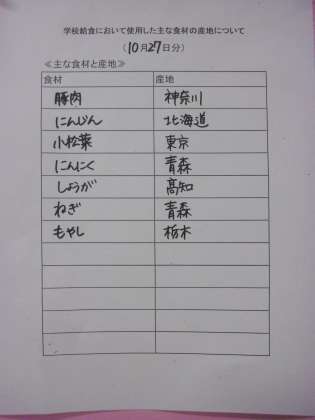 学校給食において使用した主な食材の産地について
(10月27日分)
≪主な食材と産地≫
食材 産地
豚肉 神奈川
にんじん 北海道
小松菜 東京
にんにく 青森
しょうが 高知
ねぎ 青森
もやし 栃木